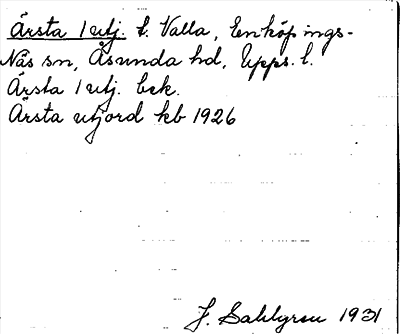 Ärsta 1 utj. t. Valla, Enköpings-
Näs sn, Åsunda hd, Upps. l.
Ärsta 1 utj. bek.
Ärsta utjord kb 1926
J. Sahlgren 1931